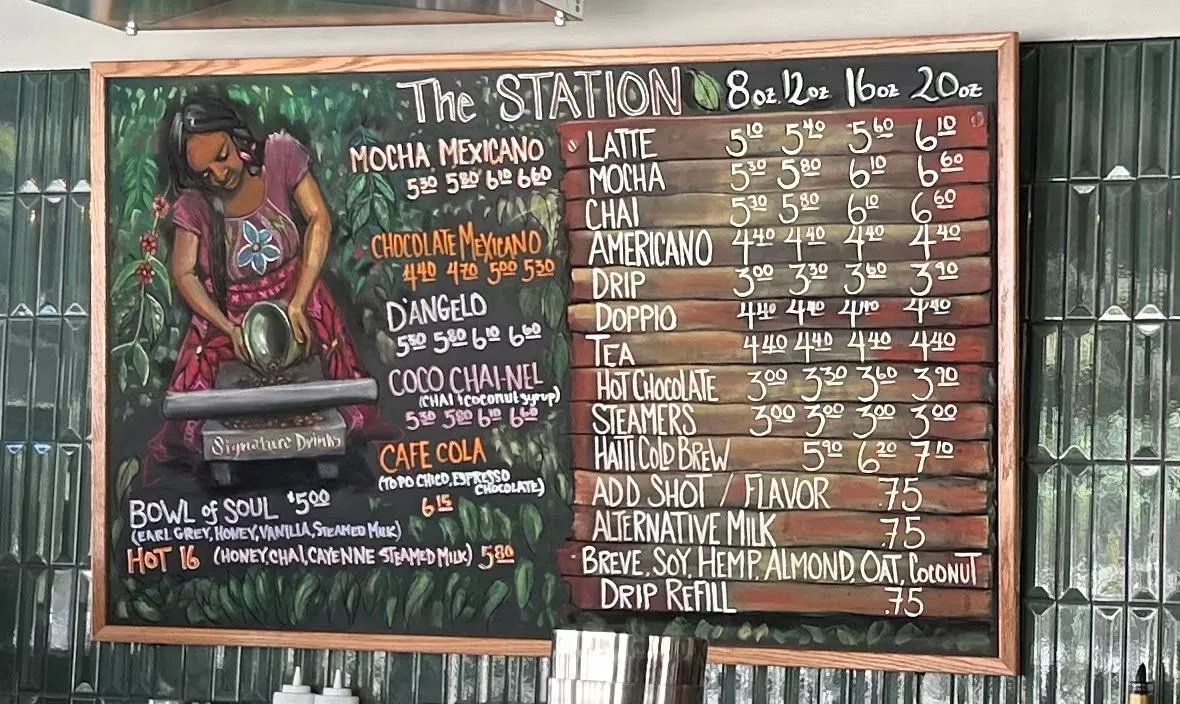 The STATION 8oz. 12oz 16oz 20oz
MOCHA MEXICANO
5 30 5 80 6 10 6 60
CHOCOLATE MEXICANO
4 40 4 70 5 00 5 30
D'ANGELO
5 30 5 80 6 10 6 60
COCO CHAI-NEL
(CHAI + coconut syrup)
5 30 5 80 6 10 6 60
CAFE COLA
(TOPO CHICO, ESPRESSO
CHOCOLATE)
6 15
Signature Drinks
BOWL of SOUL $5 00
(EARL GREY, HONEY, VANILLA, STEAMED MILK)
HOT 16 (HONEY, CHAI, CAYENNE STEAMED MILK) 5 80
LATTE 5 10 5 40 5 60 6 10
MOCHA 5 30 5 80 6 10 6 60
CHAI 5 30 5 80 6 10 6 60
AMERICANO 4 40 4 40 4 40 4 40
DRIP 3 00 3 30 3 60 3 90
DOPPIO 4 40 4 40 4 40 4 40
TEA 4 40 4 40 4 40 4 40
HOT CHOCOLATE 3 00 3 30 3 60 3 90
STEAMERS 3 00 3 00 3 00 3 00
HATTI COLD BREW 5 90 6 20 7 10
ADD SHOT / FLAVOR .75
ALTERNATIVE MILK .75
BREVE, SOY, HEMP, ALMOND, OAT, COCONUT
DRIP REFILL .75